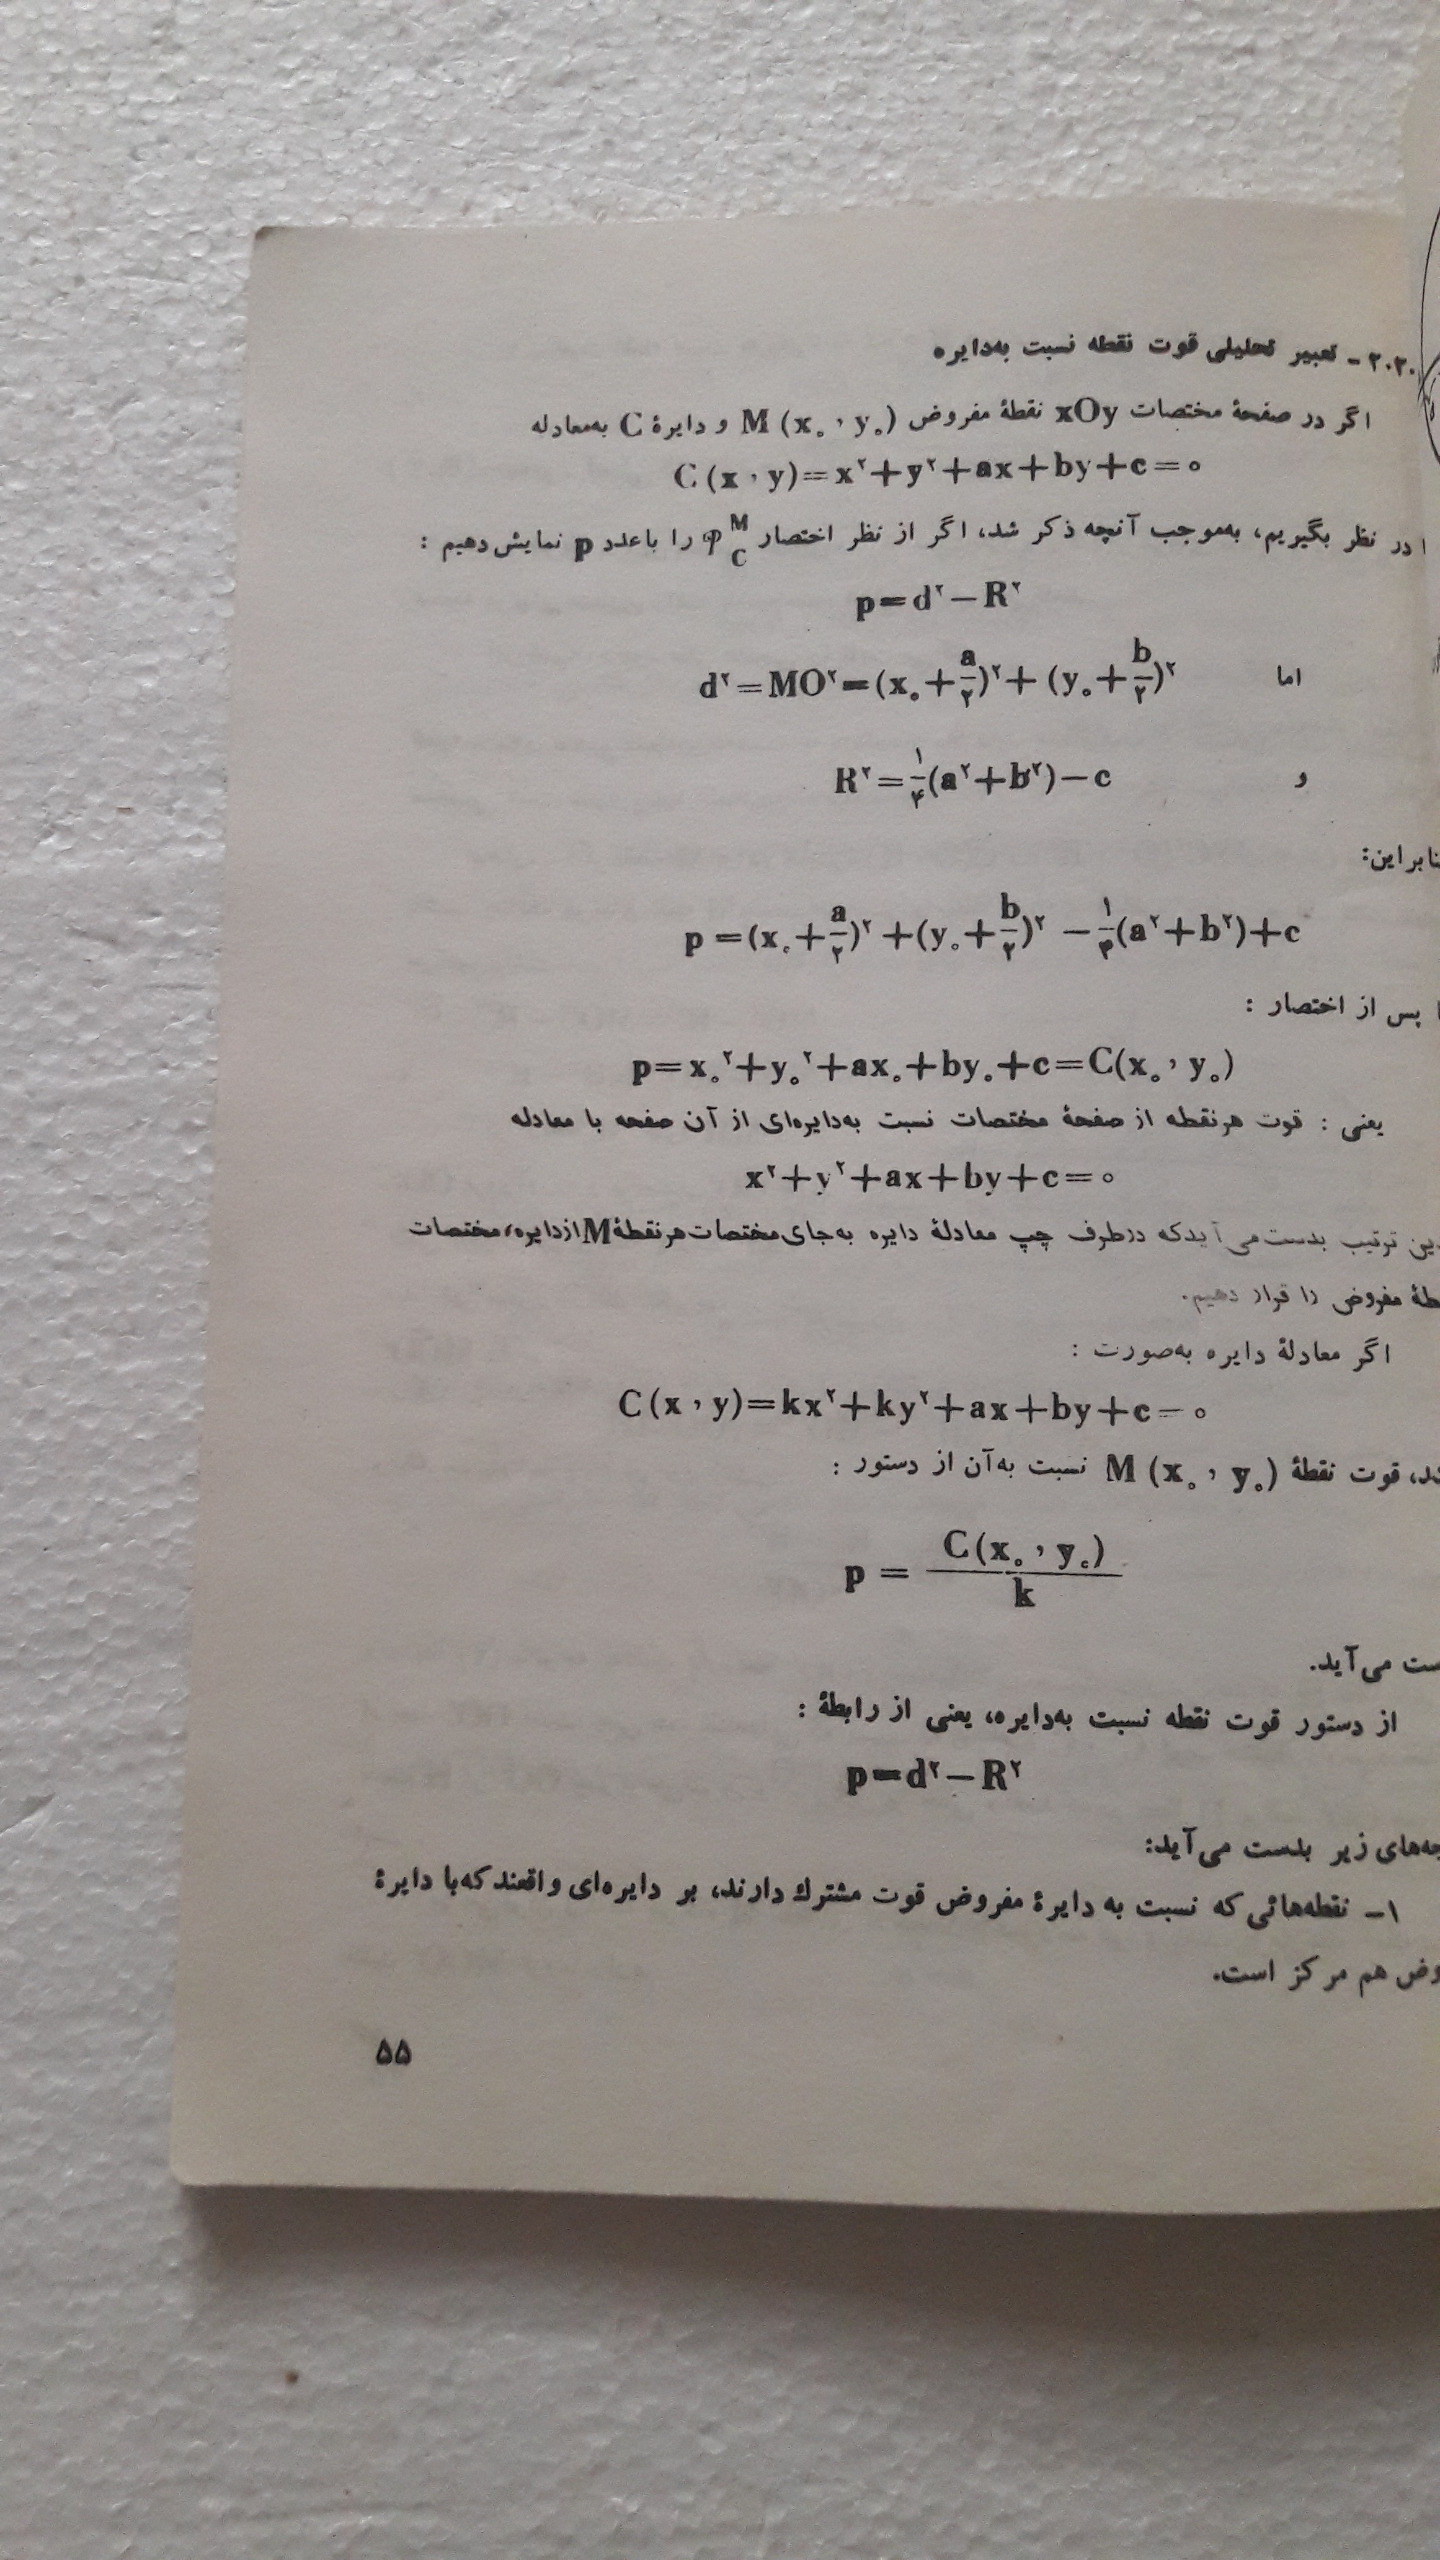 ۲.۳.۰ - تعبیر تحلیلی قوت نقطه نسبت به‌دایره
اگر در صفحهٔ مختصات xOy نقطهٔ مفروض M (x₀ , y₀) و دایرهٔ C به‌معادله
C (x , y)=x²+y²+ax+by+c=۰
در نظر بگیریم، به‌موجب آنچه ذکر شد، اگر از نظر اختصار 𝒫 M C را باعدد p نمایش‌دهیم :
p=d²−R²
اما d²=MO²=(x₀+a/۲)²+(y₀+b/۲)²
و R²=۱/۴(a²+b²)−c
p=(x₀+a/۲)²+(y₀+b/۲)²−۱/۴(a²+b²)+c
پس از اختصار :
p=x₀²+y₀²+ax₀+by₀+c=C(x₀ , y₀)
یعنی : قوت هرنقطه از صفحهٔ مختصات نسبت به‌دایره‌ای از آن صفحه با معادله
x²+y²+ax+by+c=۰
ترتیب بدست‌می‌آیدکه درطرف چپ معادلهٔ دایره به‌جای‌مختصات‌هرنقطهٔ M ازدایره، مختصات
مفروض را قرار دهیم.
اگر معادلهٔ دایره به‌صورت :
C (x , y)=kx²+ky²+ax+by+c=۰
قوت نقطهٔ M (x₀ , y₀) نسبت به‌آن از دستور :
p = C(x₀ , y₀)/k
می‌آید.
از دستور قوت نقطه نسبت به‌دایره، یعنی از رابطهٔ :
p=d²−R²
زیر بدست می‌آید:
۱- نقطه‌هائی که نسبت به دایرهٔ مفروض قوت مشترك دارند، بر دایره‌ای واقعند که‌با دایرهٔ
هم مرکز است.
۵۵